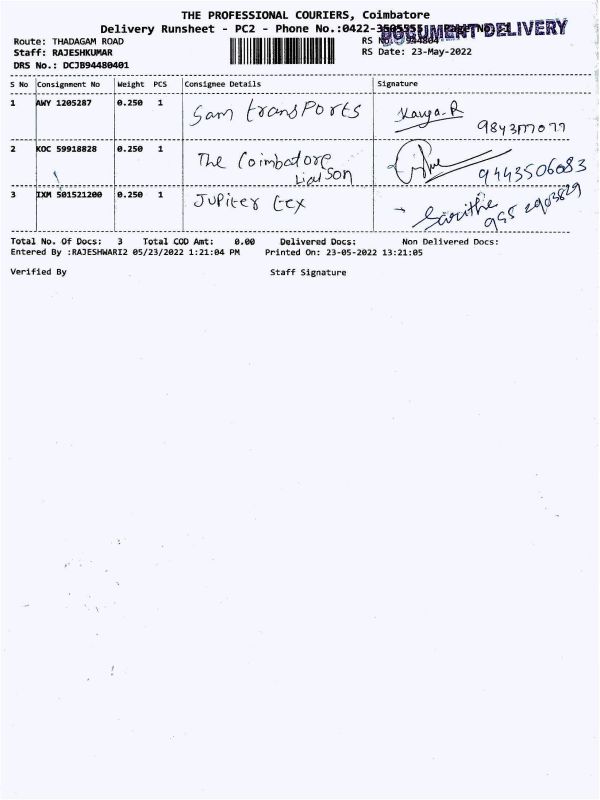 THE PROFESSIONAL COURIERS, Coimbatore
Delivery Runsheet - PC2 - Phone No.:0422-3505555
DOCUMENT DELIVERY
Route: THADAGAM ROAD
RS No.: 944804
Staff: RAJESHKUMAR
RS Date: 23-May-2022
DRS No.: DCJB94480401
S No Consignment No Weight PCS Consignee Details Signature
1 AWY 1205287 0.250 1 Sam transPorts Kavya.R
9843177077
2 KOC 59918828 0.250 1 The Coimbatore Liaison
9443506083
3 IXM 501521200 0.250 1 JUPiter tex
Total No. Of Docs: 3 Total COD Amt: 0.00 Delivered Docs: Non Delivered Docs:
Entered By :RAJESHWARI2 05/23/2022 1:21:04 PM Printed On: 23-05-2022 13:21:05
Verified By Staff Signature